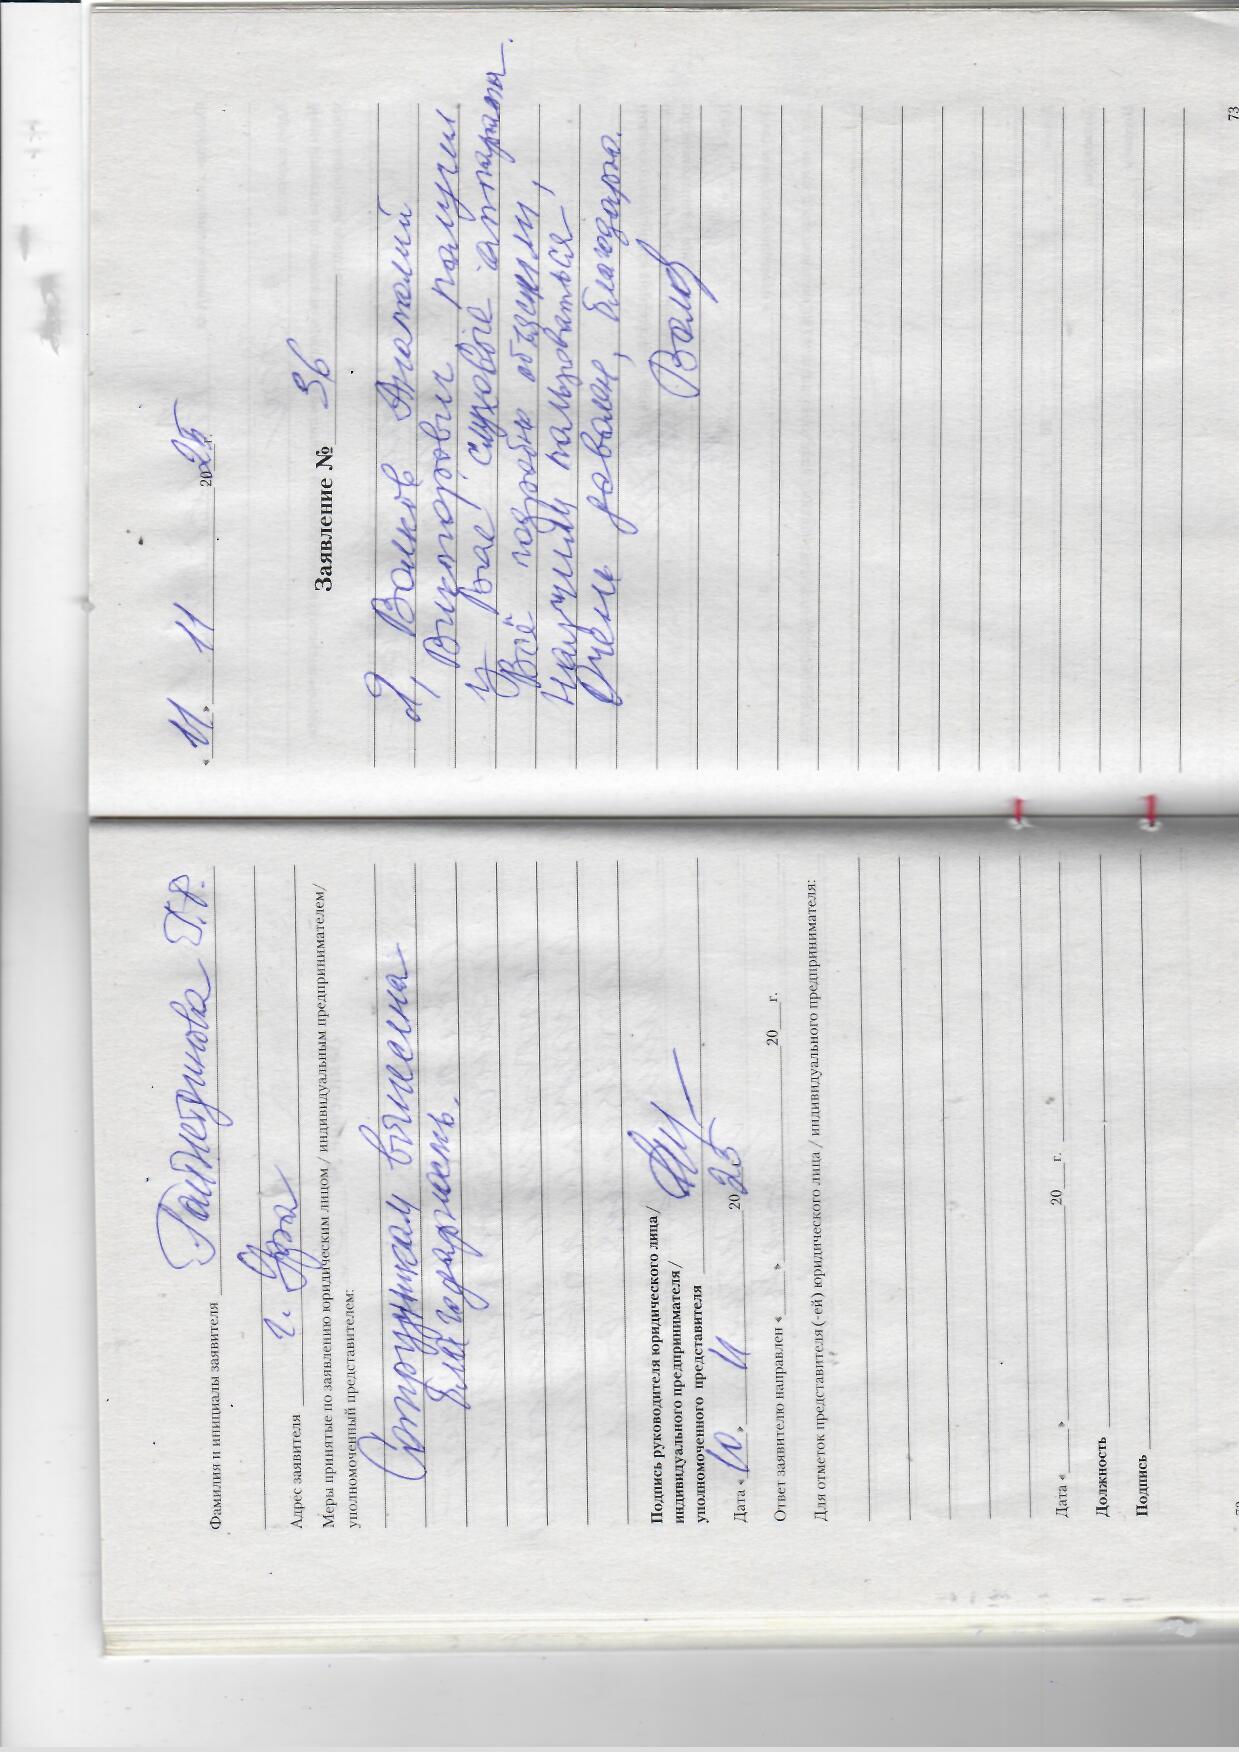 Фамилия и инициалы заявителя Гайнетдинова Г.Р.
Адрес заявителя г. Уфа
Меры принятые по заявлению юридическим лицом / индивидуальным предпринимателем/
уполномоченный представителем:
Сотрудникам вынесена
благодарность.
Подпись руководителя юридического лица/
индивидуального предпринимателя/
уполномоченного представителя
Дата «10» 11 2025
Ответ заявителю направлен «      »      20   г.
Для отметок представителя (-ей) юридического лица / индивидуального предпринимателя:
Дата «      »      20   г.
Должность
Подпись
«11» 11 2025 г.
Заявление № 36
Я, Волков Анатолий
Викторович получил
у Вас слуховые аппараты.
Всё подробно объяснили,
Научили пользоваться!
Очень доволен, благодарю.
73